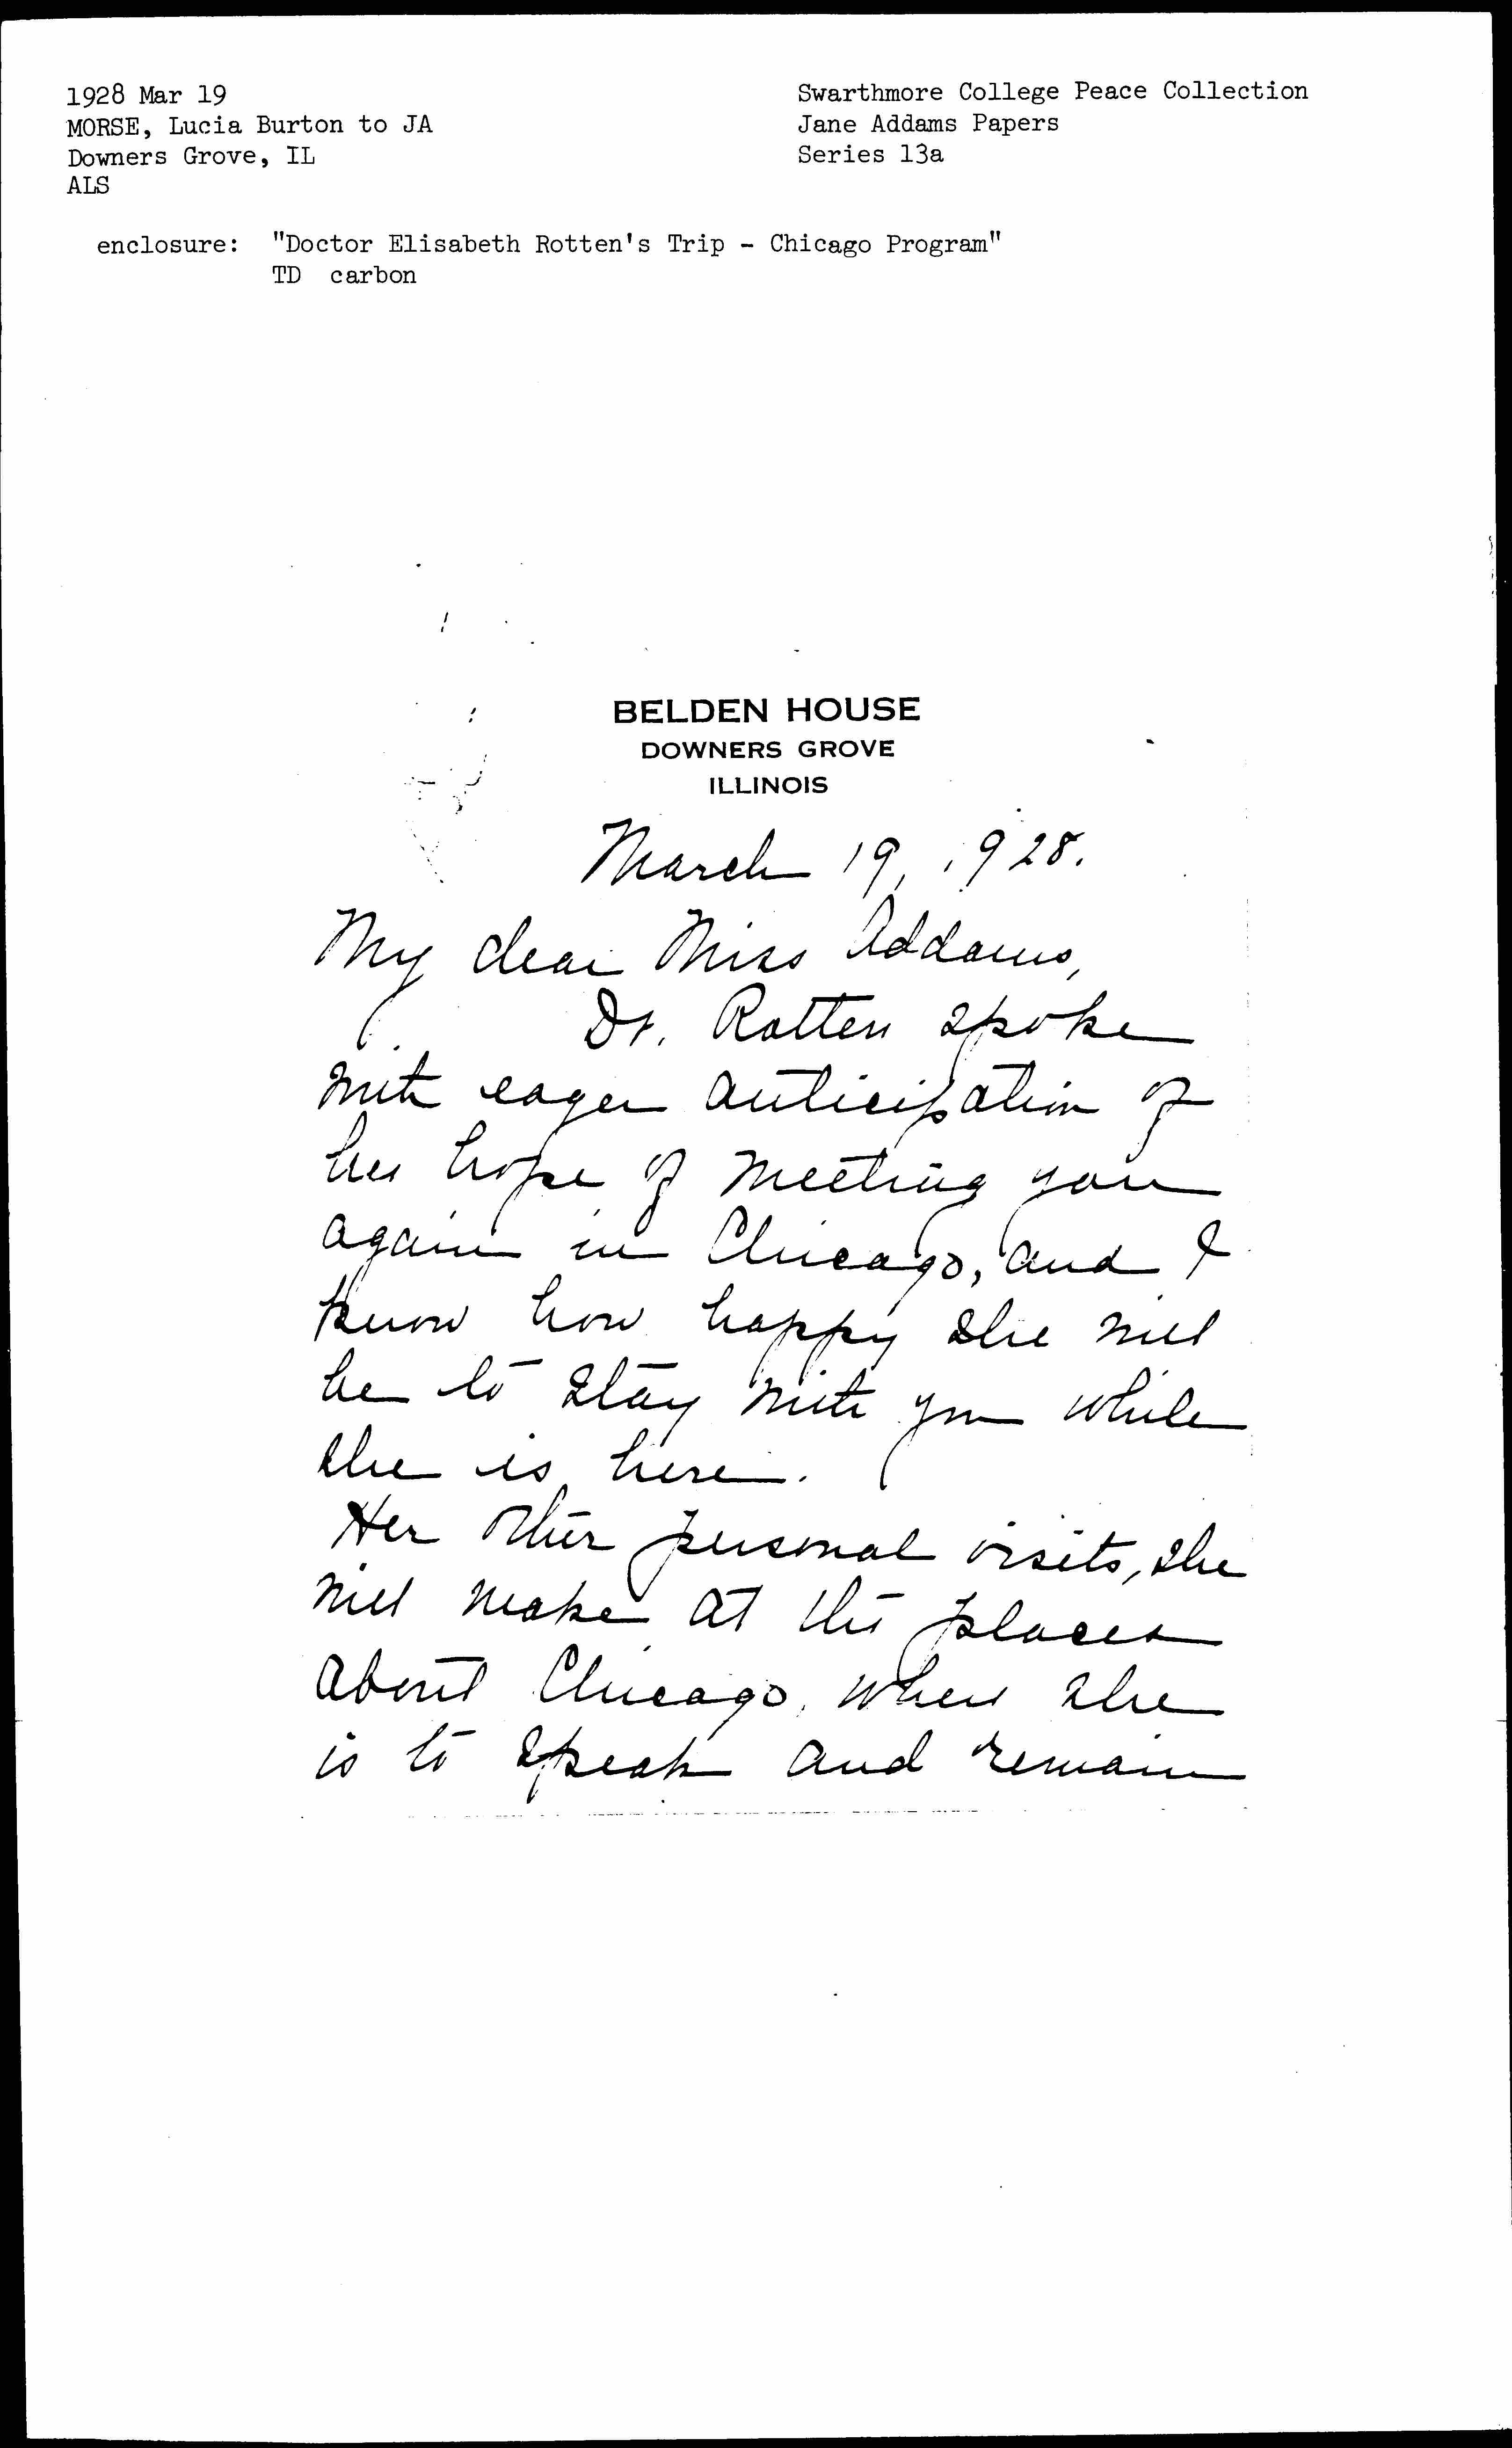 1928 Mar 19
MORSE, Lucia Burton to JA
Downers Grove, IL
ALS
Swarthmore College Peace Collection
Jane Addams Papers
Series 13a
enclosure: "Doctor Elisabeth Rotten's Trip - Chicago Program"
TD carbon
BELDEN HOUSE
DOWNERS GROVE
ILLINOIS
March 19, 1928.
My dear Miss Addams,
Dr. Rotten spoke
with eager anticipation of
her hope of meeting you
again in Chicago, and I
know how happy she will
be to stay with you while
she is here.
Her other personal visits, she
will make at the places
about Chicago, where she
is to speak and remain